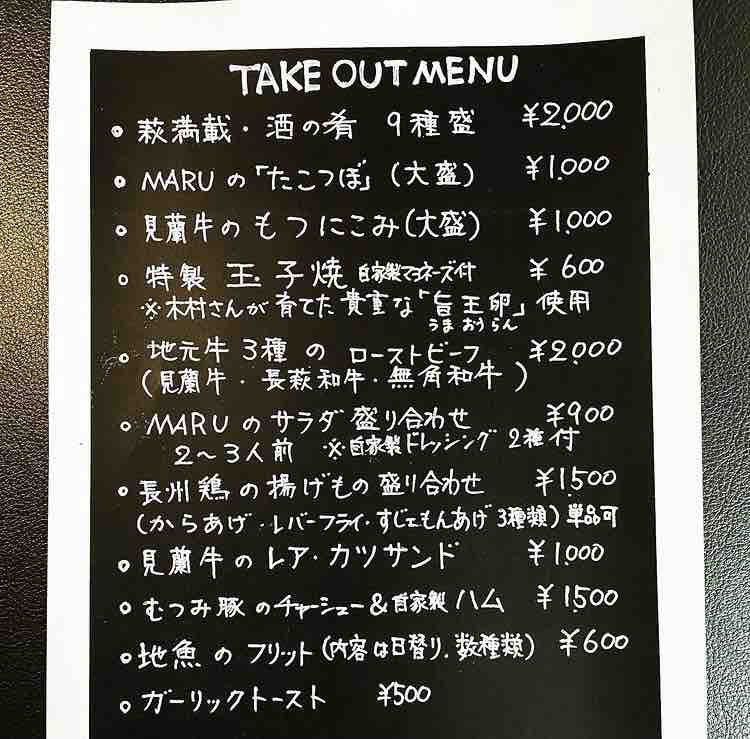 TAKE OUT MENU
萩満載・酒の肴 9種盛 ¥2.000
MARUの「たこつぼ」(大盛) ¥1.000
見蘭牛のもつにこみ(大盛) ¥1.000
特製 玉子焼 自家製マヨネーズ付 ¥600
※木村さんが育てた貴重な「旨王卵」使用
うまおうらん
地元牛3種のローストビーフ ¥2.000
(見蘭牛・長萩和牛・無角和牛)
MARUのサラダ盛り合わせ ¥900
2〜3人前 ※自家製ドレッシング2種付
長州鶏の揚げもの盛り合わせ ¥1.500
(からあげ・レバーフライ・すじェもんあげ 3種類)単品可
見蘭牛のレア・カツサンド ¥1.000
むつみ豚のチャーシュー&自家製ハム ¥1.500
地魚のフリット(内容は日替り.数種類) ¥600
ガーリックトースト ¥500